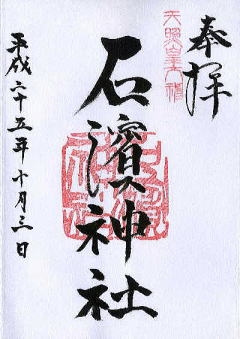 奉拝
天照皇大神
石濱神社
平成二十五年十月三日